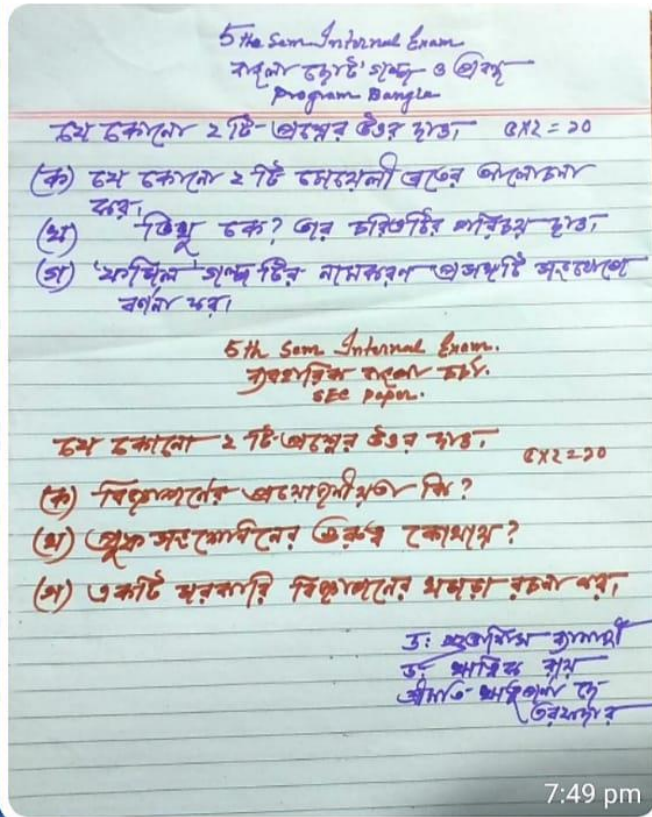 5th Sem Internal Exam
বাংলা ছোট গল্প ও প্রবন্ধ
Program Bangla
যে কোনো ২টি প্রশ্নের উত্তর দাও, ৫X২ = ১০
(ক) যে কোনো ২টি মেয়েলী ব্রতের আলোচনা
কর,
(খ) ভিখু কে? তার চরিত্রটির পরিচয় দাও,
(গ) 'ফসিল' গল্পটির নামকরণ প্রসঙ্গটি সংক্ষেপে
বর্ণনা কর।
5th Sem Internal Exam.
ব্যবহারিক বাংলা চর্চা.
SEC Paper.
যে কোনো ২টি প্রশ্নের উত্তর দাও, ৫X২=১০
(ক) বিজ্ঞাপনের প্রয়োজনীয়তা কি?
(খ) প্রুফ সংশোধনের গুরুত্ব কোথায়?
(গ) একটি সরকারি বিজ্ঞাপনের খসড়া রচনা কর,
ড: ব্যানার্জী
ড: রায়
শ্রীমতি দে
তরফদার
7:49 pm